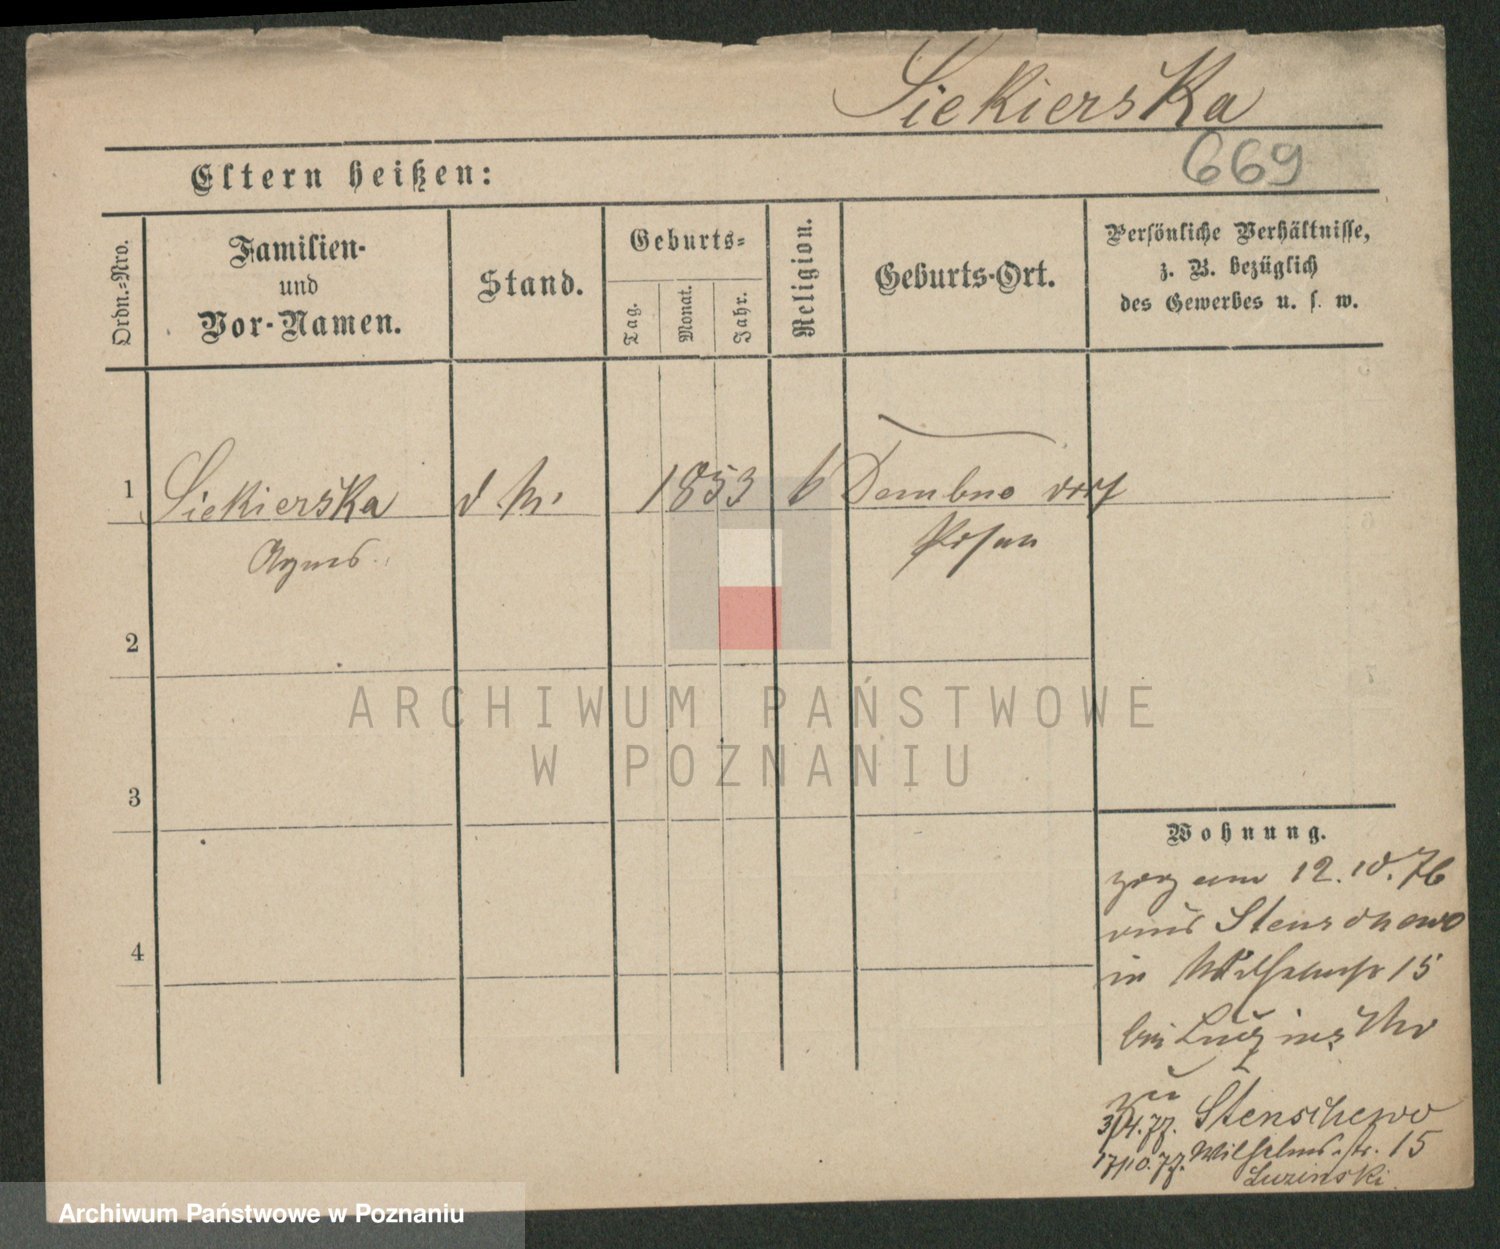 Siekierska
669
Eltern heißen:
Ordn.-Nro.
Familien-
und
Vor-Namen.
Stand.
Geburts-
Tag.
Monat.
Jahr.
Religion.
Geburts-Ort.
Persönliche Verhältnisse,
z. B. bezüglich
des Gewerbes u. s. w.
1
Siekierska
d. M.
1853
Dembno dorf
Agnes
Posen
2
3
4
Wohnung.
zog am 12.10.76
aus Stenschewo
in Wilhelmstr 15
bei
zu
3/4.77. Stenschewo
17/10.77. Wilhelms.str. 15
Luzinski
ARCHIWUM PAŃSTWOWE
W POZNANIU
Archiwum Państwowe w Poznaniu